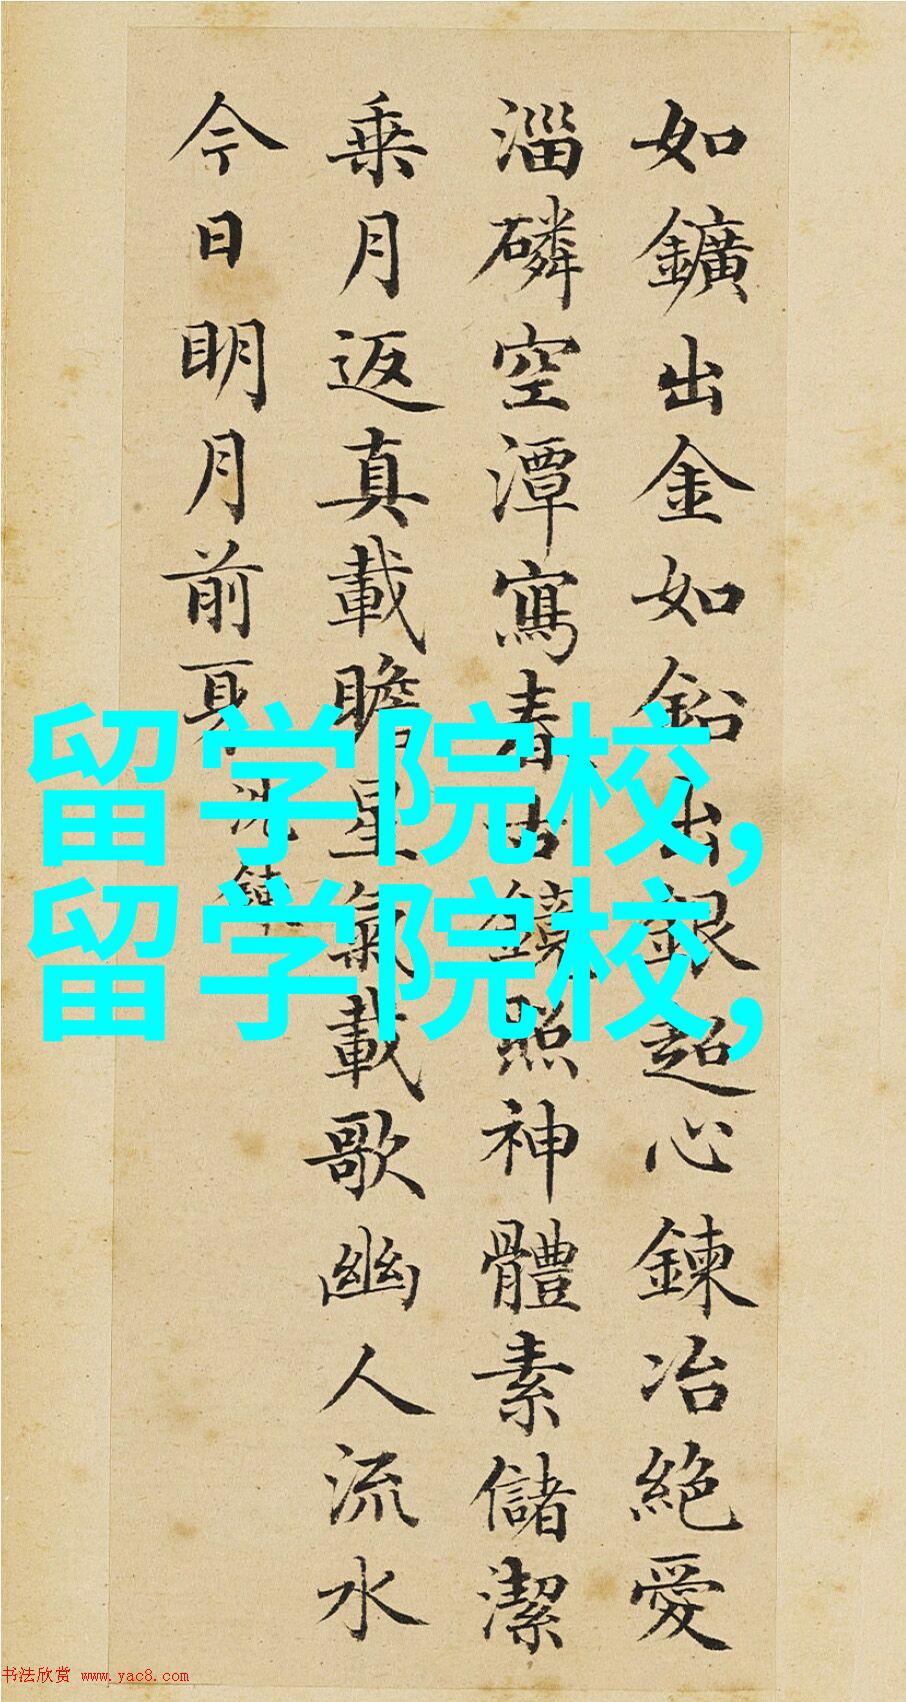 如鑛出金如鉛出銀超心鍊冶絶愛
淄磷空潭寫春古鏡照神體素儲潔
乗月返真載瞻星氣載歌幽人流水
今日明月前身 洗鍊
留学院校,
留学院校,
书法欣赏 www.yac8.com